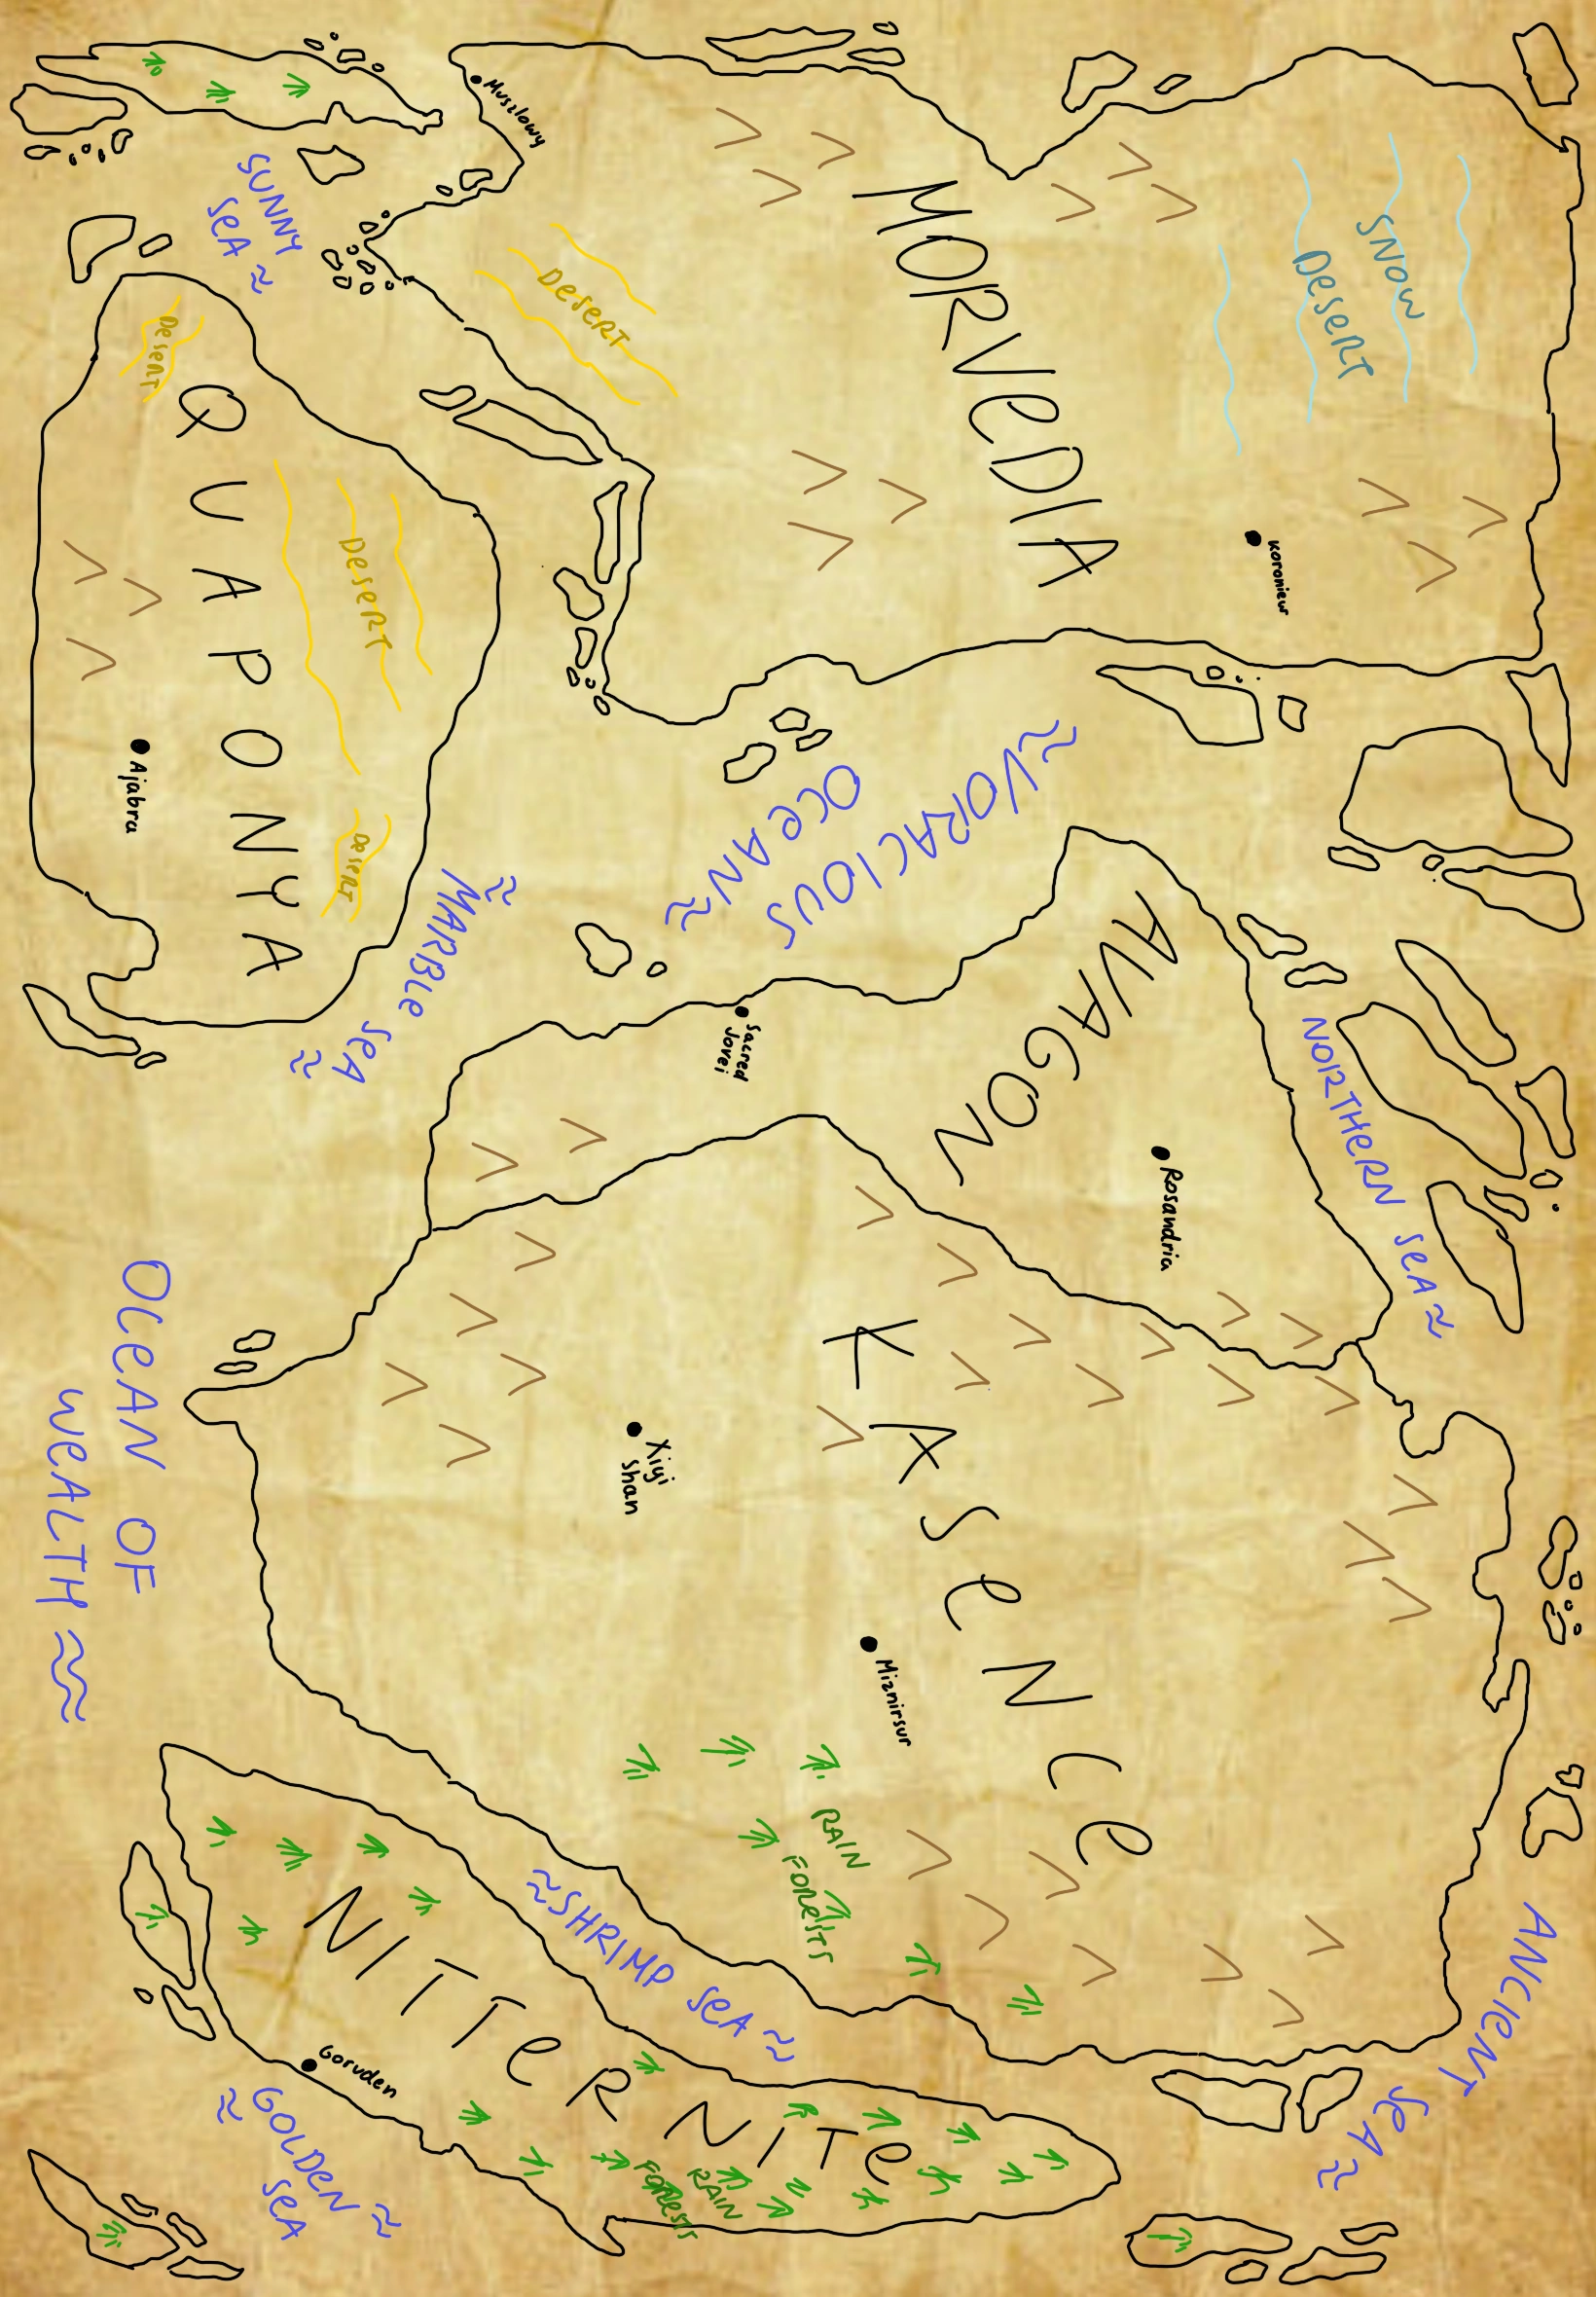 SNOW
DESERT
MORVEDIA
DESERT
Muszlowy
SUNNY
SEA
VORACIOUS
OCEAN
NORTHERN SEA
AVAGON
Rosandria
Sacred
Jovei
DESERT
DESERT
DESERT
QUAPONYA
Ajabra
MARBLE SEA
ANCIENT
SEA
KASENCE
Miznirsur
Xiyi
Shan
RAIN
FORESTS
SHRIMP SEA
OCEAN OF
WEALTH
NITTERNITE
RAIN
FORESTS
Goruden
GOLDEN
SEA